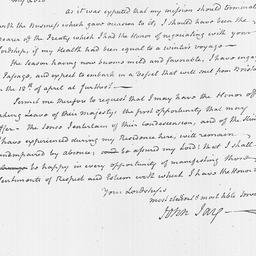 My Lord
As it was expected that my mission should terminate
with the Business which gave occasion to it, I should have been the
bearer of the Treaty which I had the Honor of negociating with your
Lordship, if my Health had been equal to a winter's voyage —
The season having now become mild and favorable, I have engaged
a Passage, and expect to embark in a Vessel that will sail from Bristol
on the 12th of april at furthest.
Permit me therefore to request that I may have the Honor of
taking Leave of their Majesties the first opportunity that may
offer. The Sense I entertain of their Condescension, and of the
I have experienced during my Residence here, will remain
unimpaired by absence; and be assured my Lord! that I shall
be happy in every opportunity of manifesting those
Sentiments of Respect and Esteem with which I have the Honor
Your Lordship's
most obedient & most hble Servt
John Jay —